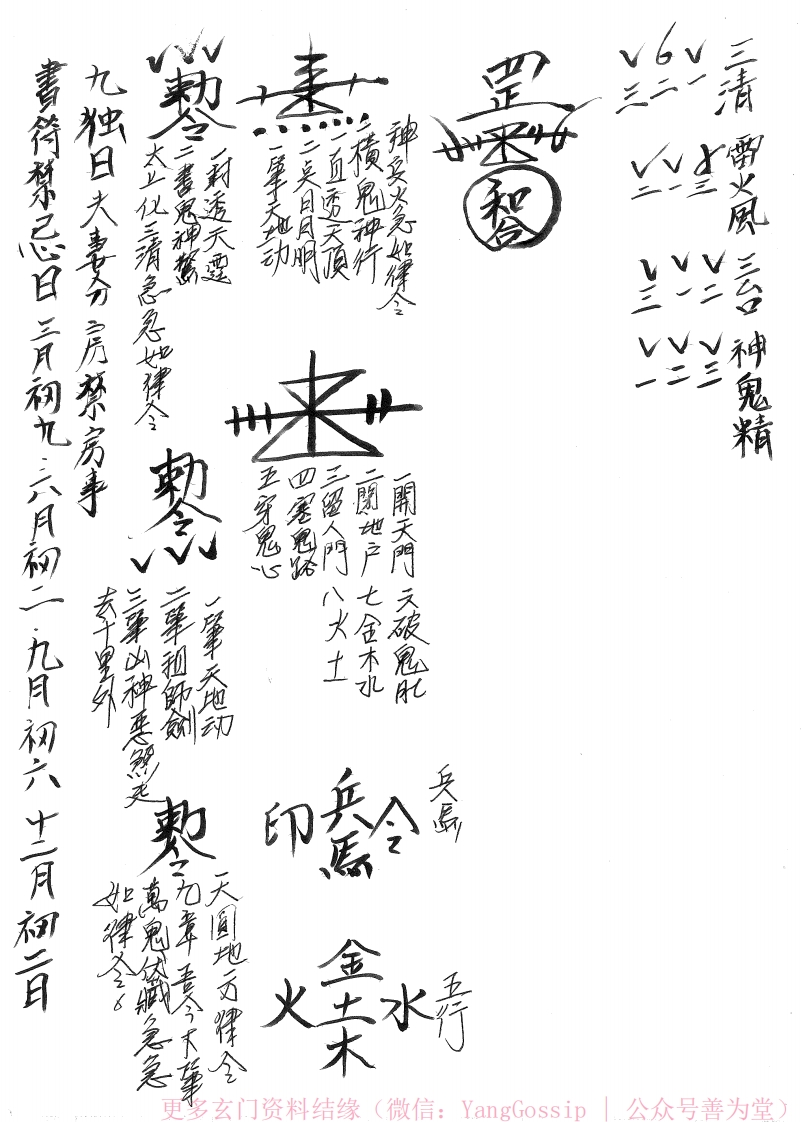 三清
一
二
三
雷火風
三
一
二
三台
二
一
三
神鬼精
三
二
一
罡
和合
神兵火急如律令
一橫鬼神行
一直透天頂
二点日月明
一筆天地动
一開天門 六破鬼肚
二閉地户 七金木水
三留人門 八火土
四塞鬼路
五穿鬼心
兵馬
印 兵馬 令
五行
金
火 土 水
木
勅令
一封透天霊
二書鬼神驚
太上化三清急急如律令
勅令
一筆天地动
二筆祖師劍
三筆凶神惡煞走
去千里外
勅令
一天圓地方律令
九章吾今下筆
萬鬼伏藏急急
如律令
九独日夫妻分房禁房事
書符禁忌日 三月初九 六月初二 九月初六 十二月初二日
更多玄门资料结缘（微信：YangGossip | 公众号善为堂）